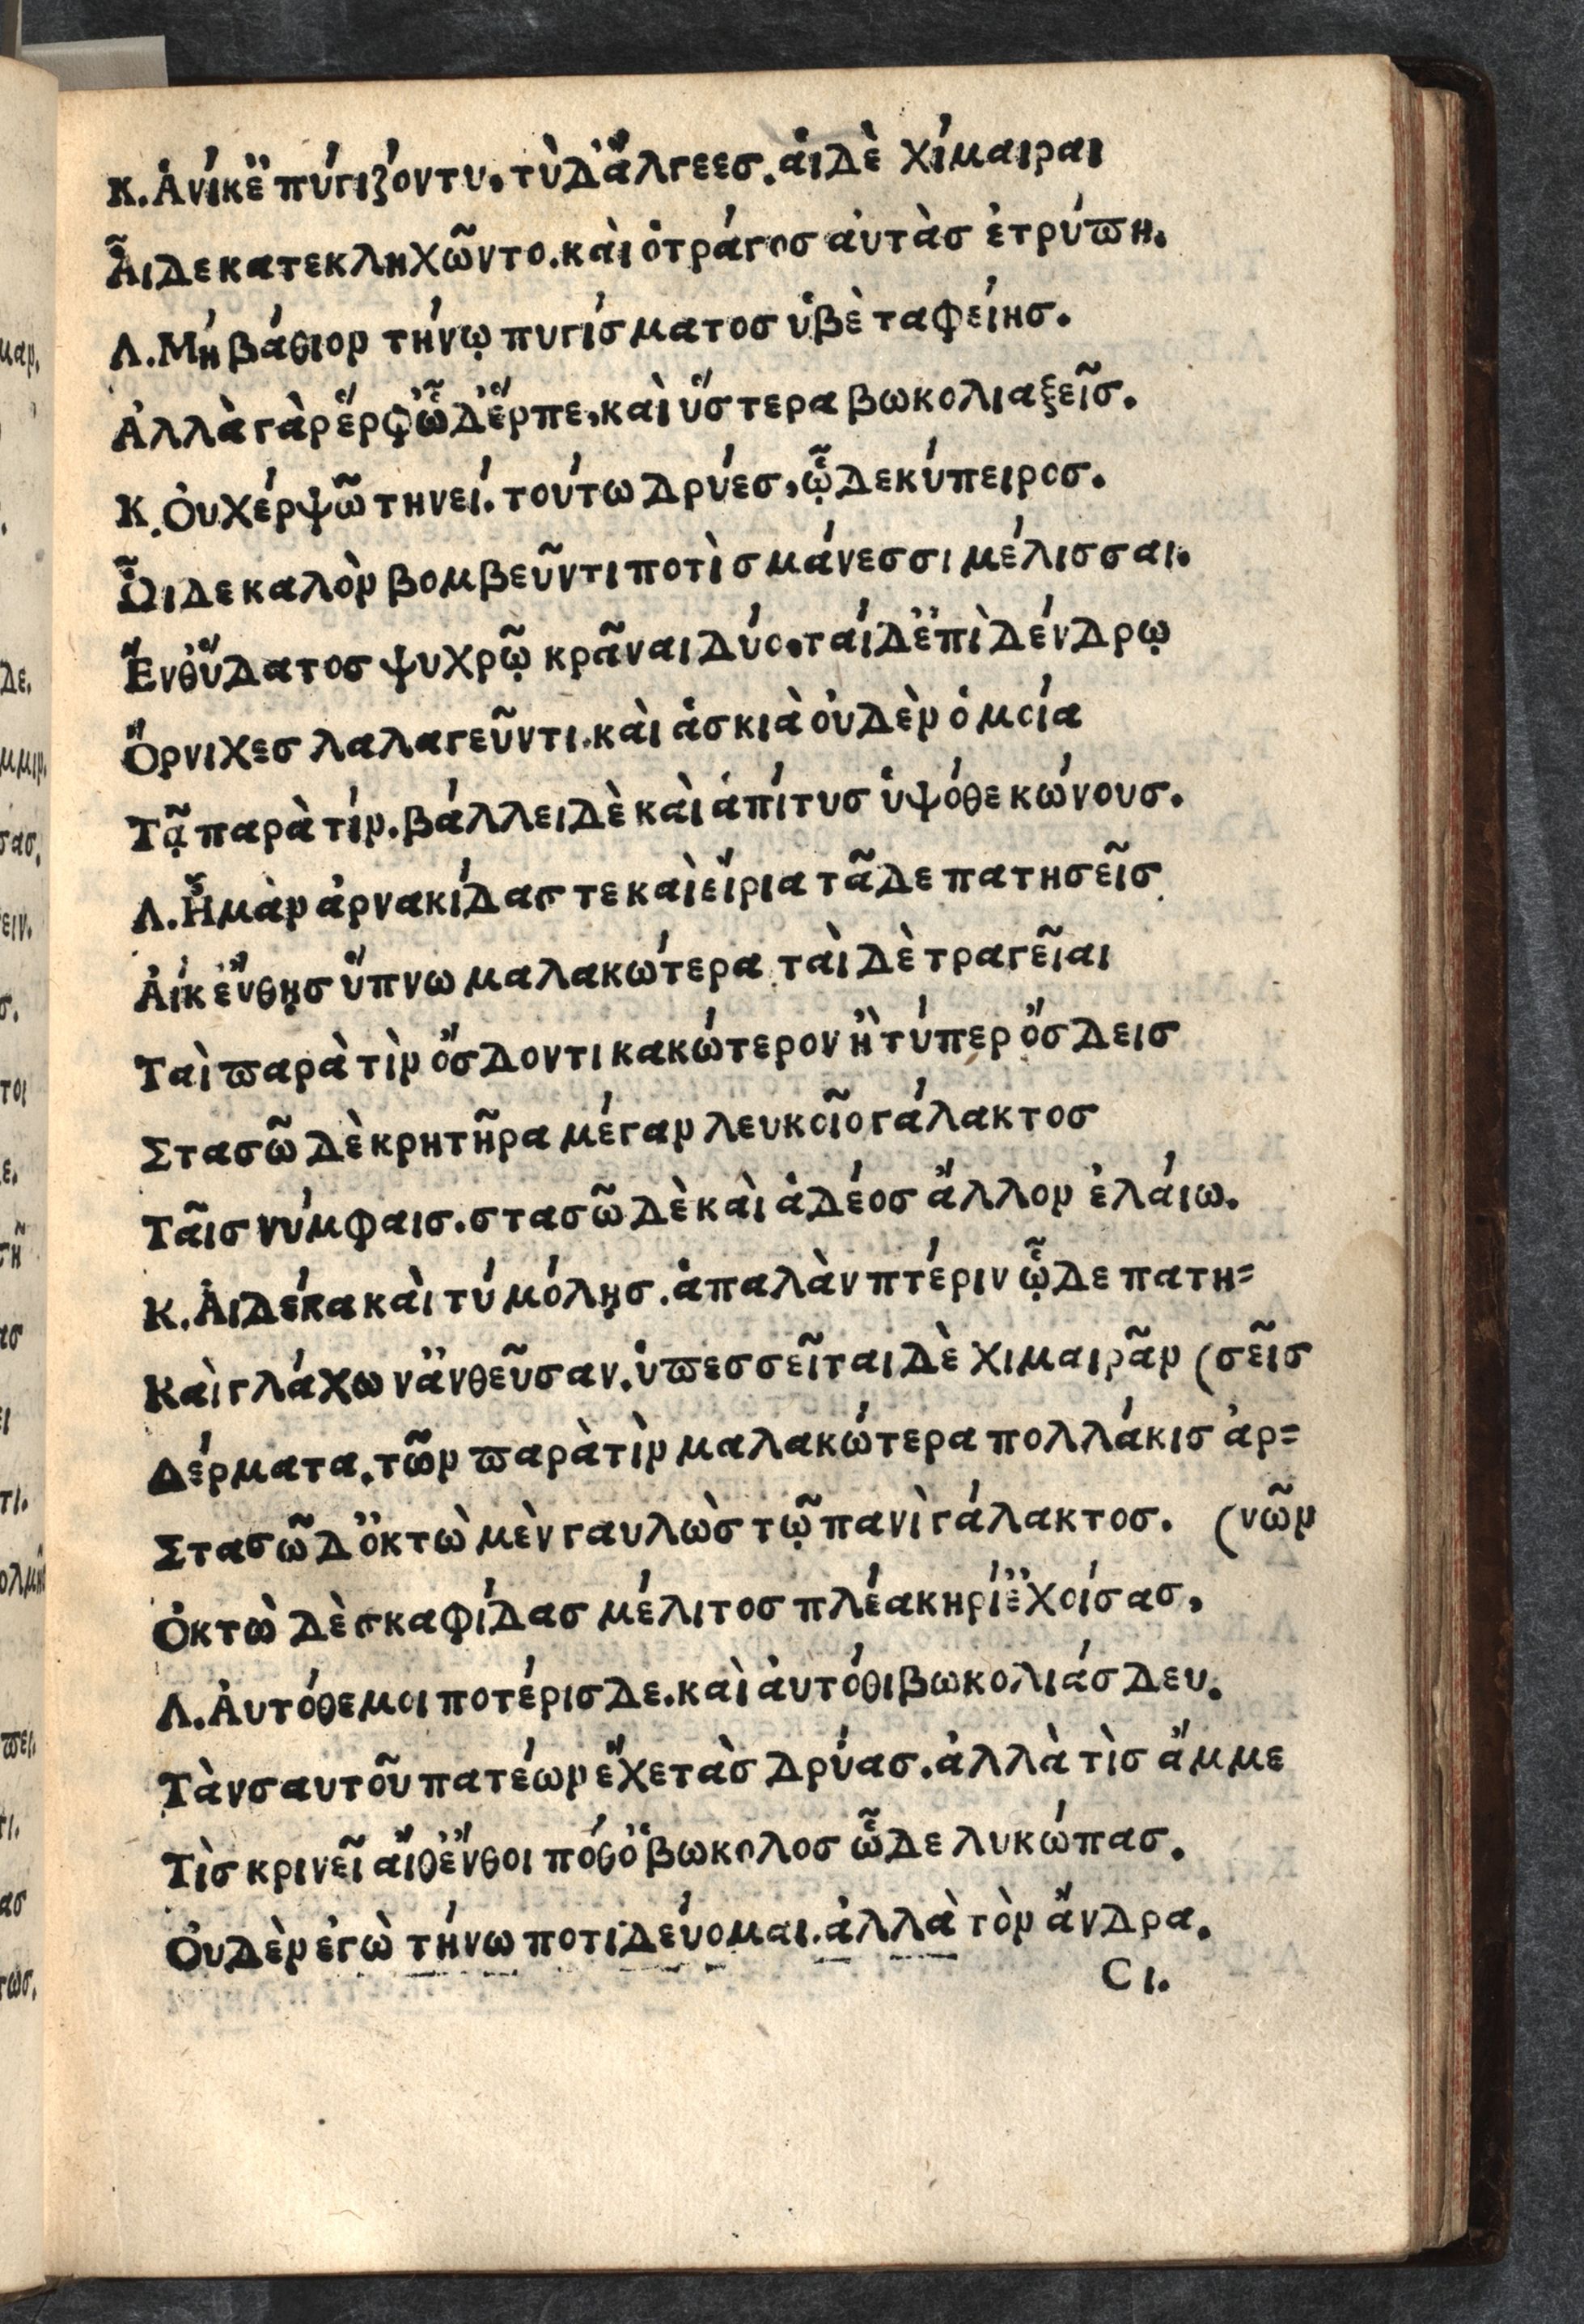 Κ. Ἁνίκ' ἐπύγιζόν τυ, τὺ δ' ἄλγεες. ἁι δὲ χίμαιραι
Ἇιδε κατεκληχῶντο. κὰι ὁ τράγος ἀυτὰς ἐτρύπη.
Λ. Μὴ βάθιον τήνῳ πυγίσματος ὑβὲ ταφείης.
Ἀλλὰ γὰρ ἕρφ' ὧδ' ἕρπε, κὰι ὕστερα βωκολιαξεῖς.
Κ. Ὀυχ ἑρψῶ τηνεί. τούτω δρύες, ᾧδε κύπειρος.
Ὧιδε καλὸν βομβεῦντι ποτὶ σμάνεσσι μέλισσαι.
Ἔνθ' ὕδατος ψυχρῷ κρᾶναι δύο. ταί δ' ἐπὶ δένδρῳ
Ὄρνιχες λαλαγεῦντι. κὰι ἁ σκιὰ ὀυδὲν ὁμοία
Τᾷ παρὰ τίν. βάλλει δὲ κὰι ἁ πίτυς ὑψόθε κώνους.
Λ. Ἦ μὰν ἀρνακίδας τε κὰι εἴρια τᾶδε πατησεῖς
Ἀίκ' ἔνθῃς ὕπνω μαλακώτερα. ταὶ δὲ τραγεῖαι
Ταὶ παρὰ τὶν ὄσδοντι κακώτερον ἢ τύπερ ὄσδεις
Στασῶ δὲ κρητῆρα μέγαν λευκοῖο γάλακτος
Τᾶις νύμφαις. στασῶ δὲ κὰι ἁδέος ἄλλον ἐλάιω.
Κ. Ἀι δέ κα κὰι τύ μόλῃς. ἁπαλὰν πτέριν ᾧδε πατη=
Κὰι γλάχων' ἀνθεῦσαν. ὑπεσσεῖται δὲ χιμαιρᾶν (σεῖς
Δέρματα. τῶν παρὰ τὶν μαλακώτερα πολλάκις ἀρ=
Στασῶ δ' ὀκτὼ μὲν γαυλὼς τῷ πανὶ γάλακτος. (νῶν
Ὀκτὼ δὲ σκαφίδας μέλιτος πλέα κηρί' ἐχοίσας,
Λ. Ἀυτόθε μοι ποτέρισδε. κὰι ἀυτόθι βωκολιάσδευ.
Τὰν σαυτοῦ πατέων ἔχε τὰς δρύας. ἀλλὰ τὶς ἄμμε
Τὶς κρινεῖ ἄιθ' ἔνθοι πόθ' ὁ βωκολος ὧδε λυκώπας.
Ὀυδὲν ἐγὼ τήνω ποτιδεύομαι. ἀλλὰ τὸν ἄνδρα.
C ι.